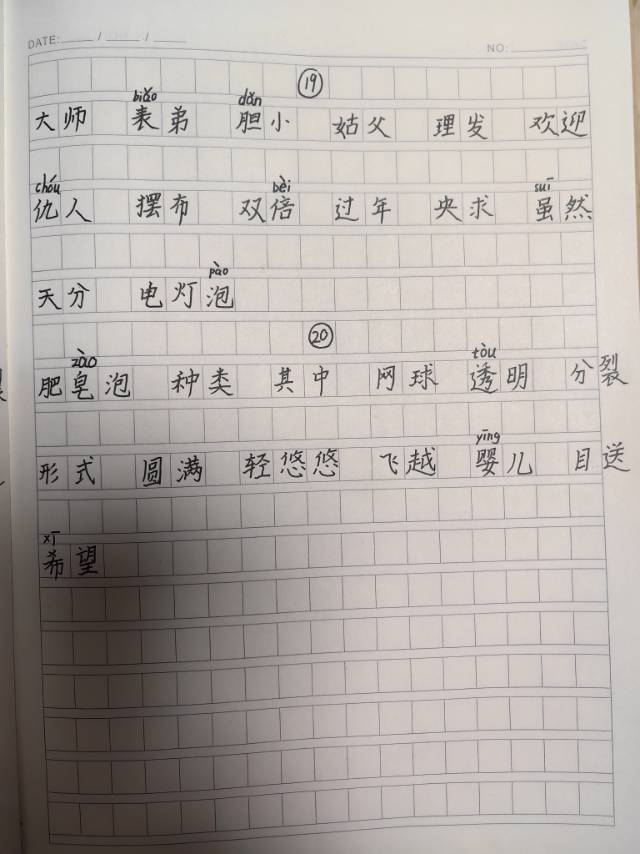 DATE: / / NO:
⑲
biǎo dǎn
大师 表弟 胆小 姑父 理发 欢迎
chóu bèi suī
仇人 摆布 双倍 过年 央求 虽然
pào
天分 电灯泡
⑳
zào tòu
肥皂泡 种类 其中 网球 透明 分裂
yīng
形式 圆满 轻悠悠 飞越 婴儿 目送
xī
希望